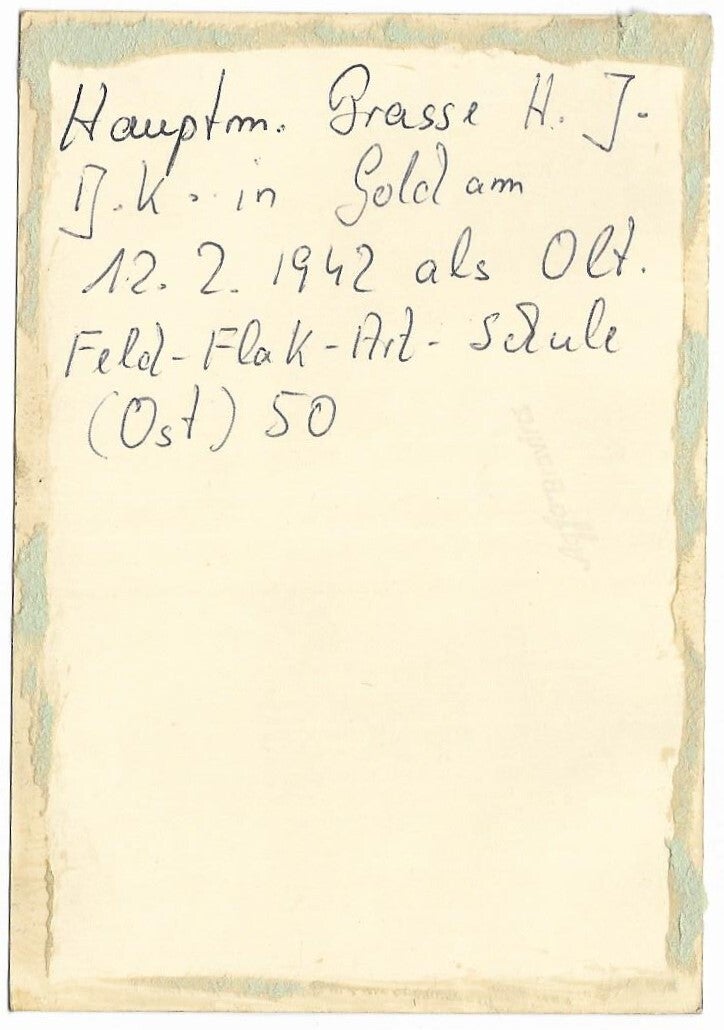 Hauptm. Brasse H. J.
D.K. in Gold am
12. 2. 1942 als Olt.
Feld-Flak-Art-Schule
(Ost) 50